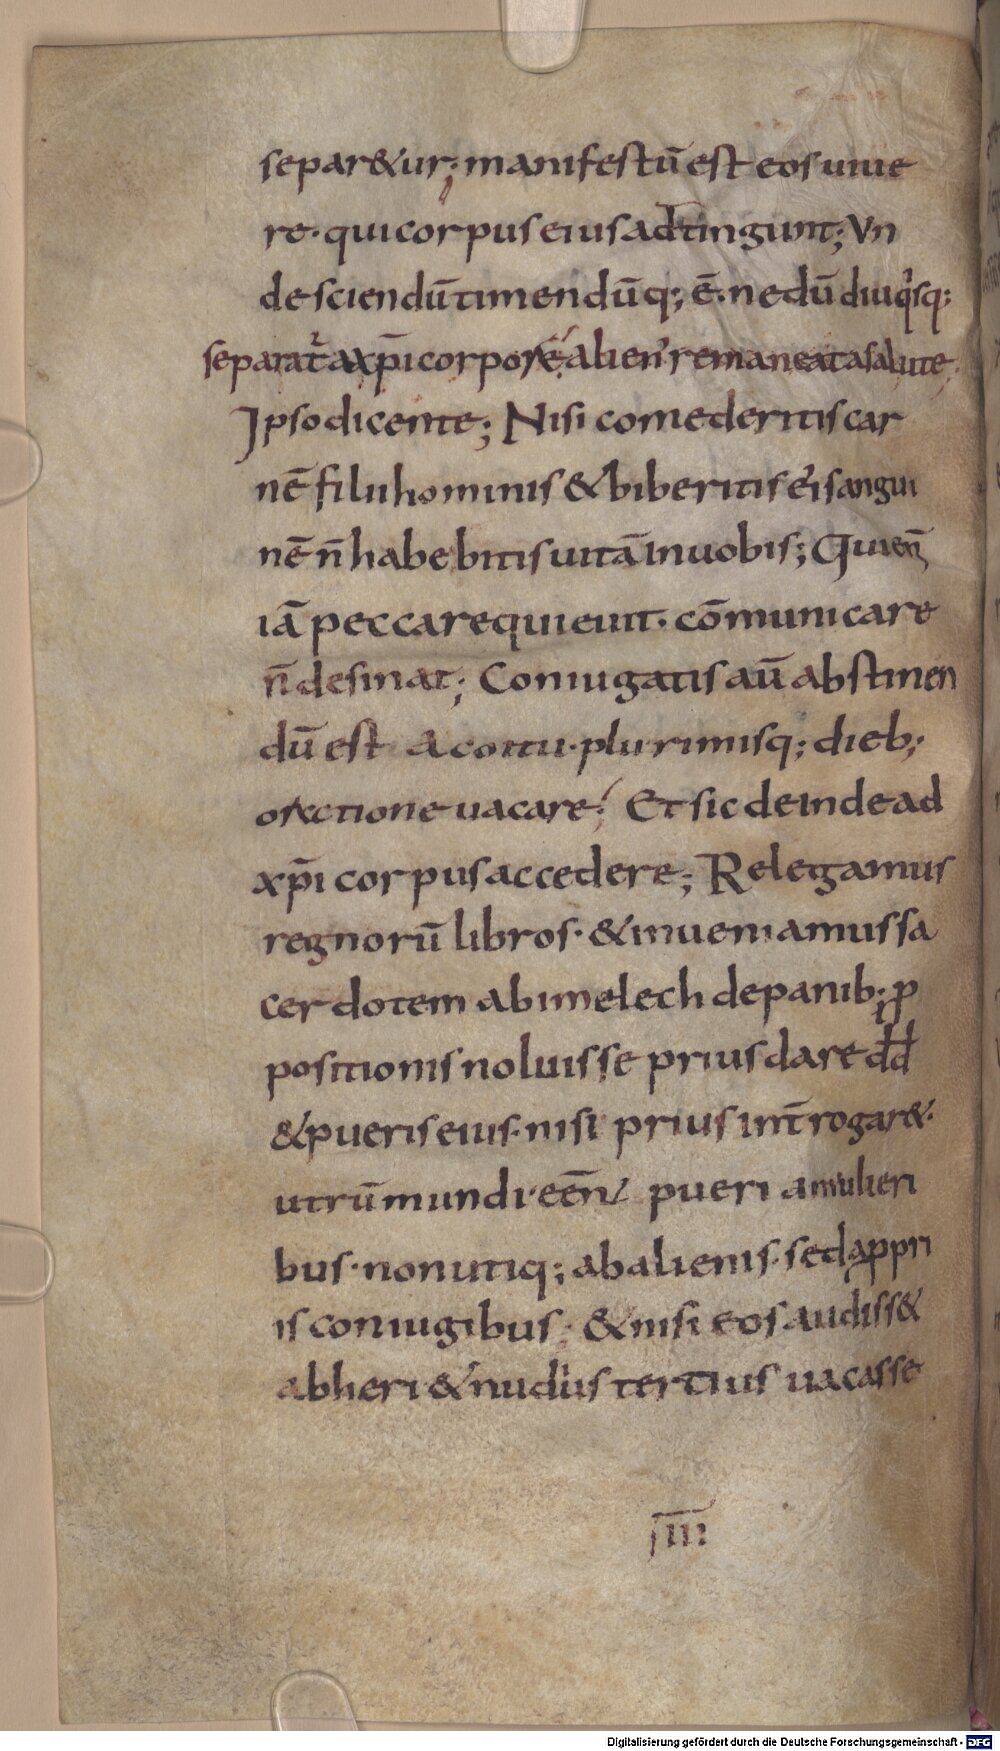 separ&ur; manifestū est eos uiue
re· qui corpus eius adtingunt; Vn
de sciendū timendūq; ē· ne dū diu q̇sq;
separat᷑ a xp̄i corpore alien᾽ remaneat a salute;
Ipso dicente; Nisi comederitis car
nē filii hominis & biberitis ei᾽ sangui
nē n̄ habebitis uitā in uobis; Qui enī
iā peccare quieuit· cōmunicare
n̄ desinat; Coniugatis aū abstinen
dū est a coitu· plurimisq; dieb;
oratione uacare; Et sic deinde ad
xp̄i corpus accedere; Relegamus
regnorū libros· & inueniamus sa
cerdotem abimelech de panib; ꝓ
positionis noluisse prius dare dd̄
& pueris eius· nisi prius int̄rogar&·
utrū mundi eēn᷑ pueri a mulieri
bus· non utiq; ab alienis· sed a ꝓpri
is coniugibus· & nisi eos audiss&
ab heri & nudius tertius uacasse
IIII
Digitalisierung gefördert durch die Deutsche Forschungsgemeinschaft - DFG